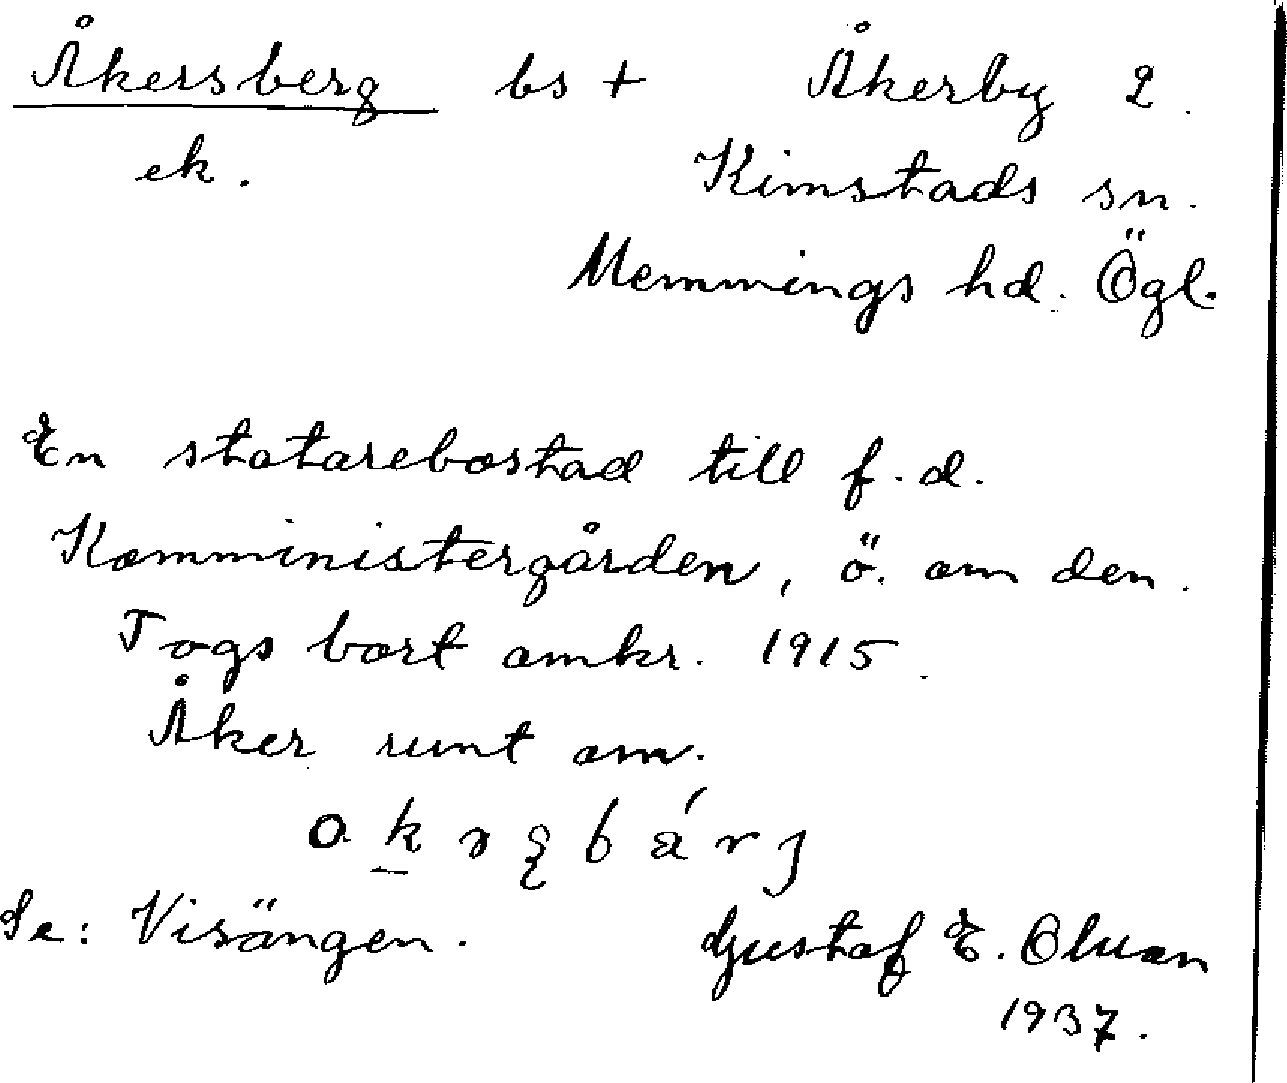 Åkersberg bs + Åkerby 2.
ek. Kimstads sn.
Memmings hd. Ögl.
En statarebostad till f.d.
Komministergården, ö. om den.
Togs bort omkr. 1915.
Åker runt om.
Se: Visängen. Gustaf E. Olson
1937.